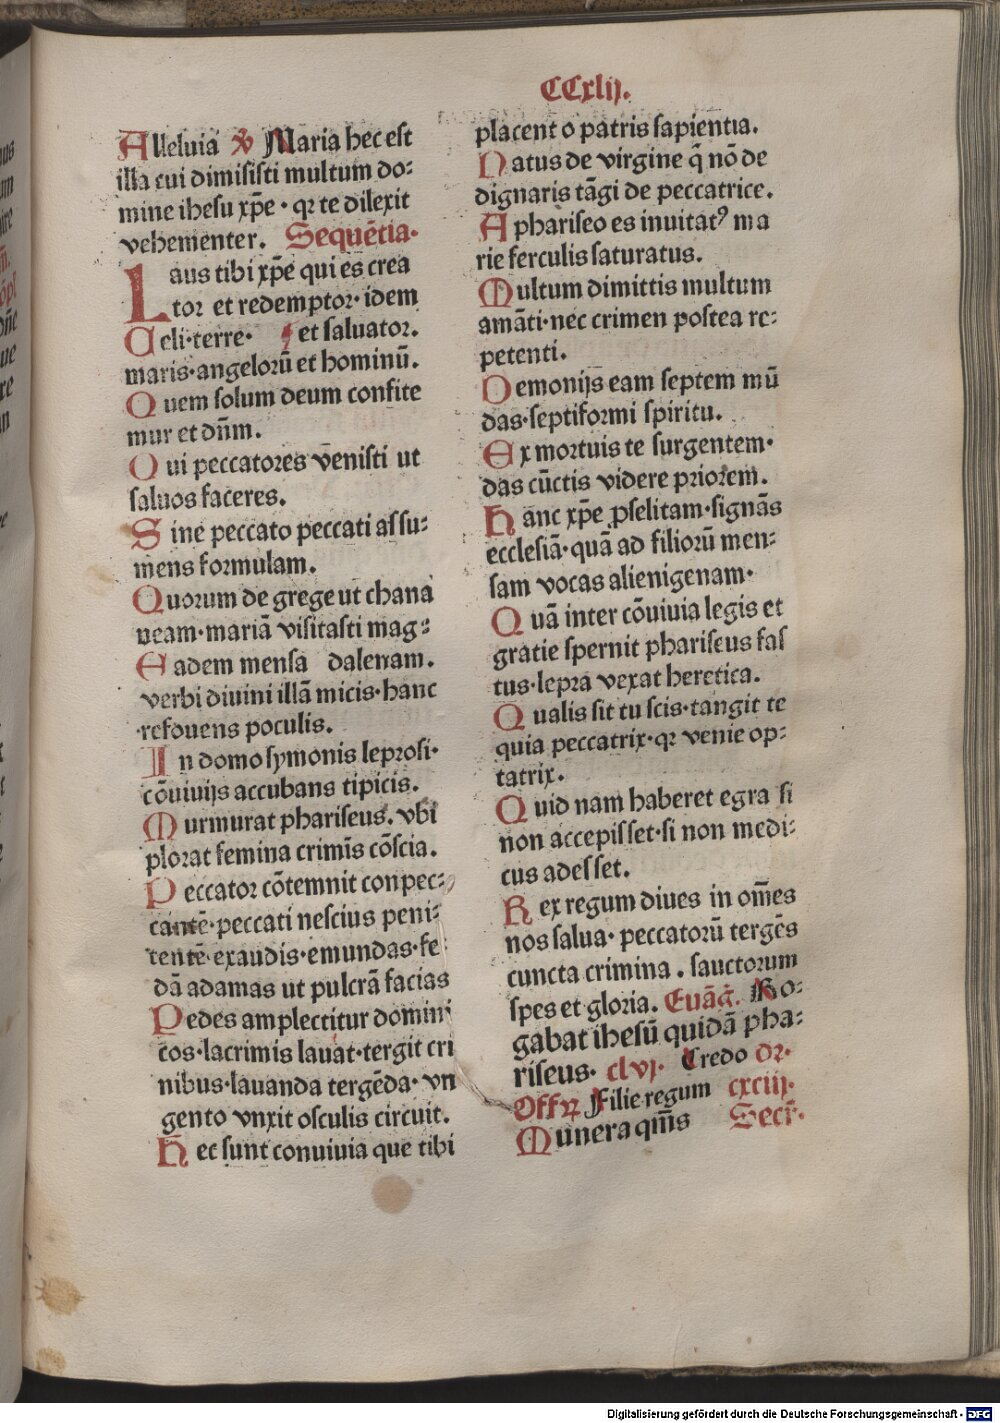 CCxlij.
Alleluia ꝟ Maria hec est
illa cui dimisisti multum do⸗
mine ihesu xp̄e · qꝛ te dilexit
vehementer. Sequētia·
Laus tibi xp̄e qui es crea
tor et redemptor· idem
Celi·terre· ¶ et saluator.
maris·angelorū et hominū.
Quem solum deum confite
mur et dn̄m.
Qui peccatores vēnisti ut
saluos faceres.
Sine peccato peccati assu⸗
mens formulam.
Quorum de grege ut chana
neam·mariā visitasti mag⸗
Eadem mensa dalenam.
verbi diuini illā micis·hanc
refouens poculis.
In domo symonis leprosi·
cōuiuijs accubans tipicis.
Murmurat phariseus. vbi
plorat femina crimīs cōscia.
Peccator cōtemnit conpec⸗
cantē·peccati nescius peni⸗
tentē·exaudis·emundas·fe
dā adamas ut pulcrā facias
Pedes amplectitur domini
cos·lacrimis lauat·tergit cri
nibus·lauanda tergēda· vn
gento vnxit osculis circuit.
Hec sunt conuiuia que tibi
placent o patris sapientia.
Natus de virgine q̄ nō de
dignaris tāgi de peccatrice.
A phariseo es inuitatꝰ ma
rie ferculis saturatus.
Multum dimittis multum
amāti·nec crimen postea re⸗
petenti.
Demonijs eam septem mū
das·septiformi spiritu.
Ex mortuis te surgentem·
das cūctis videre priorem.
Hanc xp̄e ꝓselitam·signās
ecclesiā·quā ad filiorū men⸗
sam vocas alienigenam·
Quā inter cōuiuia legis et
gratie spernit phariseus fas
tus·lepra vexat heretica.
Qualis sit tu scis·tangit te
quia peccatrix·qꝛ venie op⸗
tatrix.
Quid nam haberet egra si
non accepisset·si non medi⸗
cus adesset.
Rex regum diues in om̄es
nos salua· peccatorū tergēs
cuncta crimina . sanctorum
spes et gloria. Euāḡ. Ro⸗
gabat ihesū quidā pha⸗
riseus· clvj· Credo oꝛ·
Offꝝ Filie regum cxciij.
Munera qm̄s Secr̄·
Digitalisierung gefördert durch die Deutsche Forschungsgemeinschaft · DFG